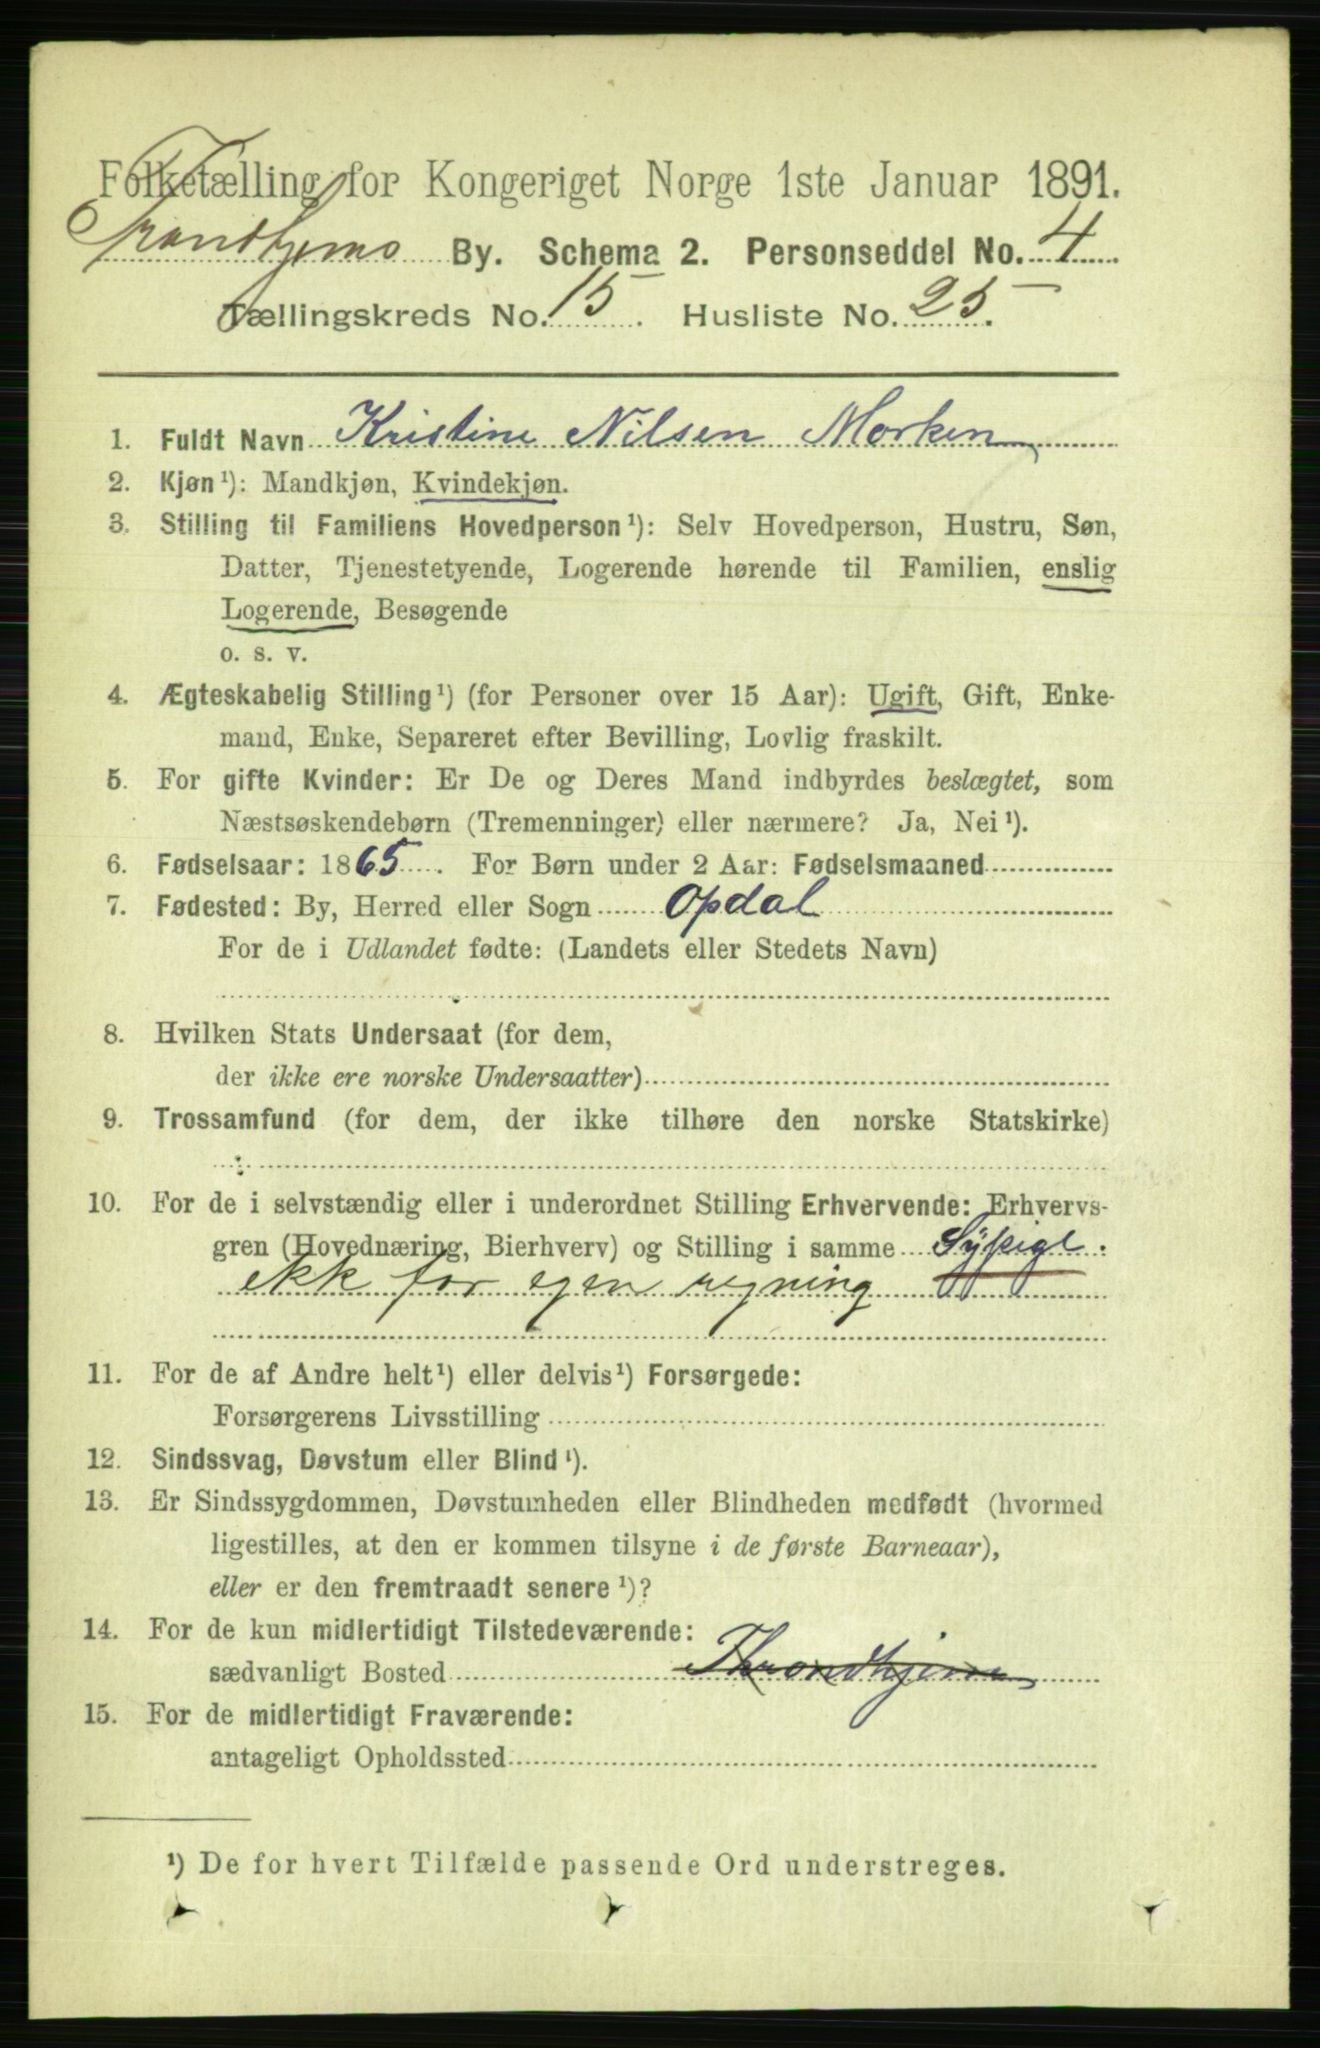 Folketælling for Kongeriget Norge 1ste Januar 1891.
Trondhjems By. Schema 2. Personseddel No. 4
Tællingskreds No. 15. Husliste No. 25.
1. Fuldt Navn Kristine Nilsen Morken
2. Kjøn¹): Mandkjøn, Kvindekjøn.
3. Stilling til Familiens Hovedperson¹): Selv Hovedperson, Hustru, Søn,
Datter, Tjenestetyende, Logerende hørende til Familien, enslig
Logerende, Besøgende
o. s. v.
4. Ægteskabelig Stilling¹) (for Personer over 15 Aar): Ugift, Gift, Enke-
mand, Enke, Separeret efter Bevilling, Lovlig fraskilt.
5. For gifte Kvinder: Er De og Deres Mand indbyrdes beslægtet, som
Næstsøskendebørn (Tremenninger) eller nærmere? Ja, Nei¹).
6. Fødselsaar: 1865. For Børn under 2 Aar: Fødselsmaaned
7. Fødested: By, Herred eller Sogn Opdal
For de i Udlandet fødte: (Landets eller Stedets Navn)
8. Hvilken Stats Undersaat (for dem,
der ikke ere norske Undersaatter)
9. Trossamfund (for dem, der ikke tilhøre den norske Statskirke)
10. For de i selvstændig eller i underordnet Stilling Erhvervende: Erhvervs-
gren (Hovednæring, Bierhverv) og Stilling i samme Sypige.
ekk for egen regning
11. For de af Andre helt¹) eller delvis¹) Forsørgede:
Forsørgerens Livsstilling
12. Sindssvag, Døvstum eller Blind¹).
13. Er Sindssygdommen, Døvstumheden eller Blindheden medfødt (hvormed
ligestilles, at den er kommen tilsyne i de første Barneaar),
eller er den fremtraadt senere¹)?
14. For de kun midlertidigt Tilstedeværende:
sædvanligt Bosted Throndhjem
15. For de midlertidigt Fraværende:
antageligt Opholdssted
¹) De for hvert Tilfælde passende Ord understreges.